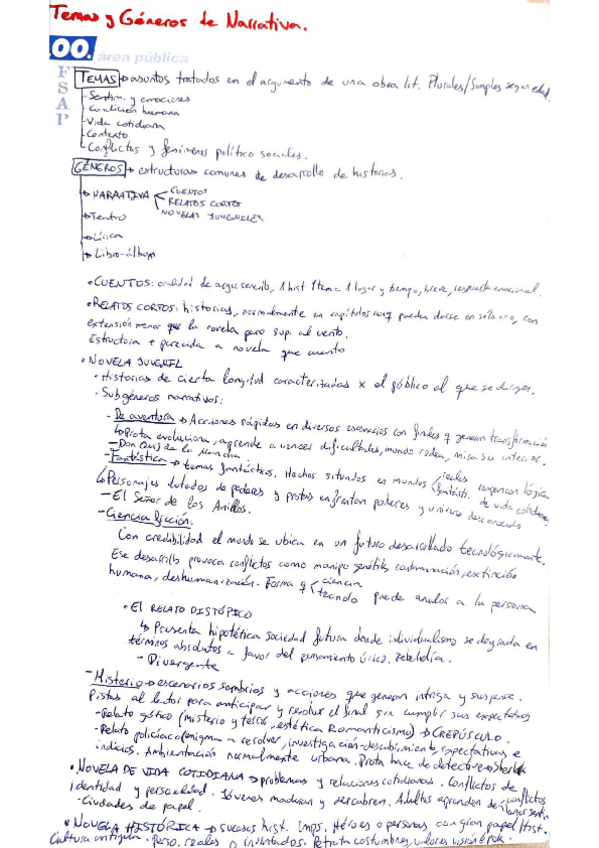 Temas y Géneros de Narrativa.
00. área pública
F
S
A
P
TEMAS → asuntos tratados en el argumento de una obra lit. Plurales/Simples según edad.
- Sentim. y emociones
- Condición humana
- Vida cotidiana
- Contexto
- Conflictos y fenómenos político sociales.
GÉNEROS → estructuras comunes de desarrollo de historias.
→ NARRATIVA CUENTOS
RELATOS CORTOS
NOVELAS JUVENILES
→ Teatro
→ Lírica
→ Libro-álbum
• CUENTOS: oralidad de argu sencillo, 1 hist 1 tema 1 lugar y tiempo, breve, respuesta emocional.
• RELATOS CORTOS: historias, normalmente en capítulos aunq pueden darse en sólo uno, con
extensión menor que la novela pero sup. al cuento.
Estructura + parecida a novela que cuento
• NOVELA JUVENIL
• Historias de cierta longitud caracterizadas x el público al que se dirigen.
• Subgéneros narrativos:
- De aventura → Acciones rápidas en diversos escenarios con finales q generan transformación
↳ Prota evoluciona, aprende a vencer dificultades, mundo rodea, mira su interior.
- Don Quij de la Mancha
- Fantástica → temas fantásticos. Hechos situados en mundos reales
fantásti. rompen con lógica
de vida cotidiana
↳ Personajes dotados de poderes y protas enfrentan poderes y universo desconocido
- El Señor de los Anillos.
- Ciencia ficción:
Con credibilidad el mundo se ubica en un futuro desarrollado tecnológicamente.
Ese desarrollo provoca conflictos como manipu genética, contaminación, extinción
humana, deshumanización. Forma q ciencia
tecnolo puede anular a la persona
• El RELATO DISTÓPICO
↳ Presenta hipotética sociedad futura donde individualismo se degrada en
términos absolutos a favor del pensamiento único. rebeldía.
- Divergente
- Misterio → escenarios sombríos y acciones que generan intriga y suspense.
Pistas al lector para anticipar y resolver el final sin cumplir sus expectativas
- Relato gótico (misterio y terror, estética Romanticismo) → CREPÚSCULO.
- Relato policíaco (enigma a resolver, investigación-descubrimiento, expectativas e
indicios. Ambientación normalmente urbana. Prota hace de detective → Sherlock
• NOVELA DE VIDA COTIDIANA → problemas y relaciones cotidianas. Conflictos de
identidad y personalidad. Jóvenes maduran y descubren. Adultos aprenden de conflictos
- Ciudades de papel.
• NOVELA HISTÓRICA → sucesos hist. imp. Héroes o personas con gran papel Hist.
Cultura antigua. Perso. reales o inventados. Retrata costumbres, valores, visión